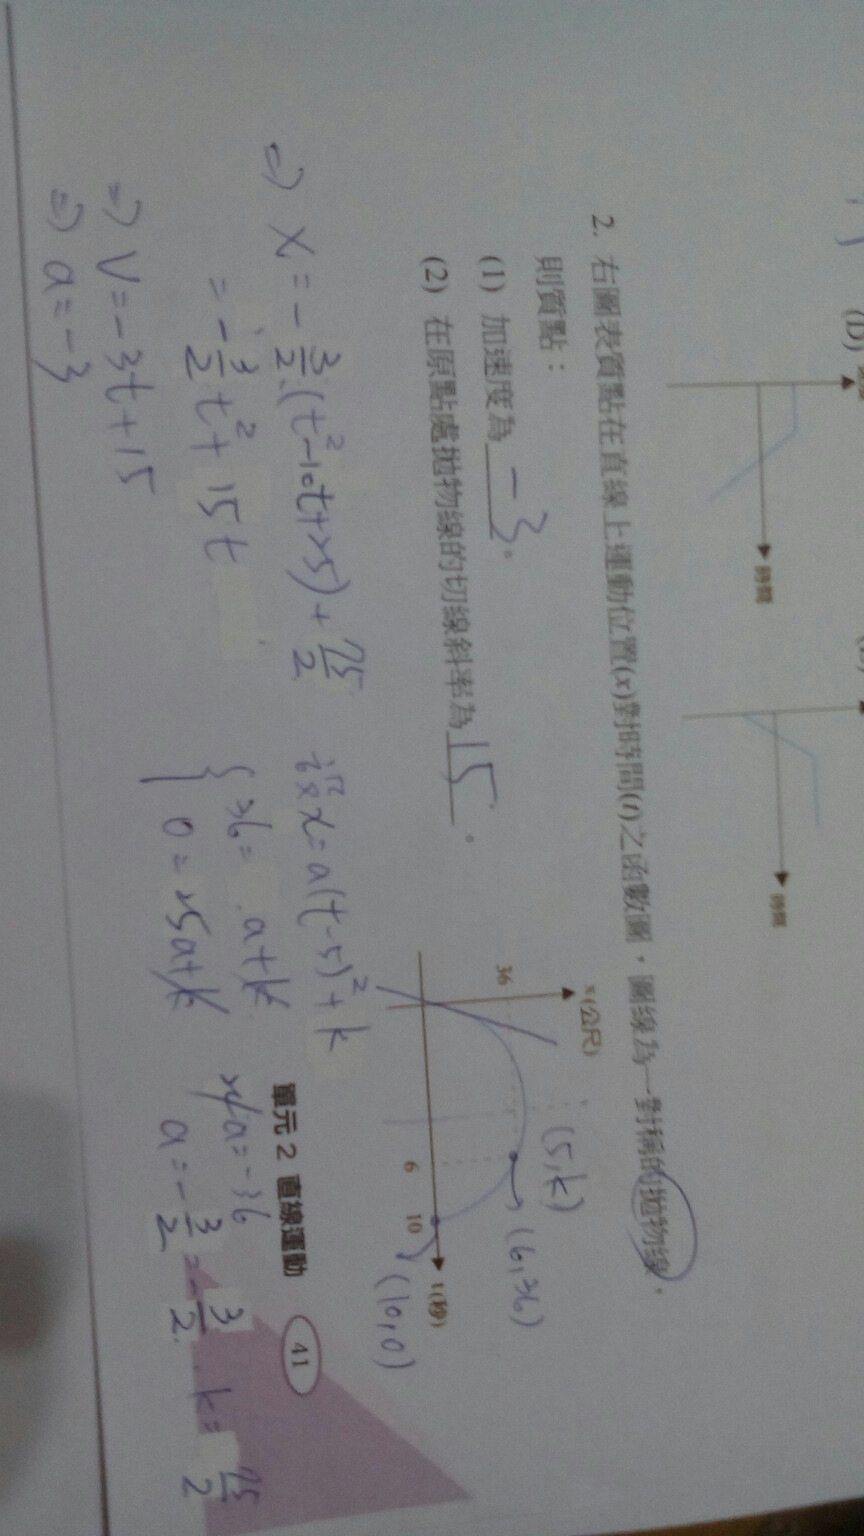 (D)
時間
時間
2. 右圖表質點在直線上運動位置(x)對時間(t)之函數圖，圖線為一對稱的拋物線，
則質點：
(1) 加速度為 -3 。
(2) 在原點處拋物線的切線斜率為 15 。
x(公尺)
36
6
10
t(秒)
(5,k)
(6,36)
(10,0)
設x=a(t-5)²+k
{36= a+k
0=25a+k
24a=-36
a=-3/2=-3/2. k=75/2
⇒ x=-3/2.(t²-10t+25)+75/2
=-3/2t²+15t
⇒ V=-3t+15
⇒ a=-3
單元 2 直線運動
41